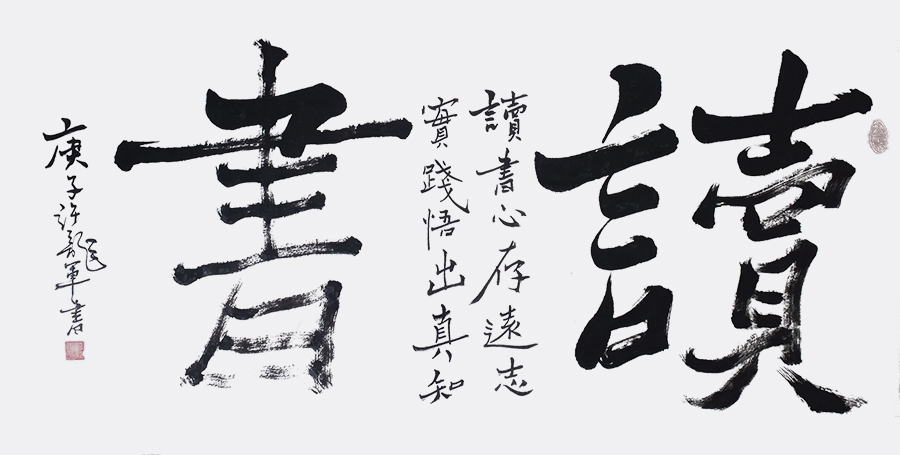 讀書
讀書心存遠志
實踐悟出真知
庚子許龍軍書